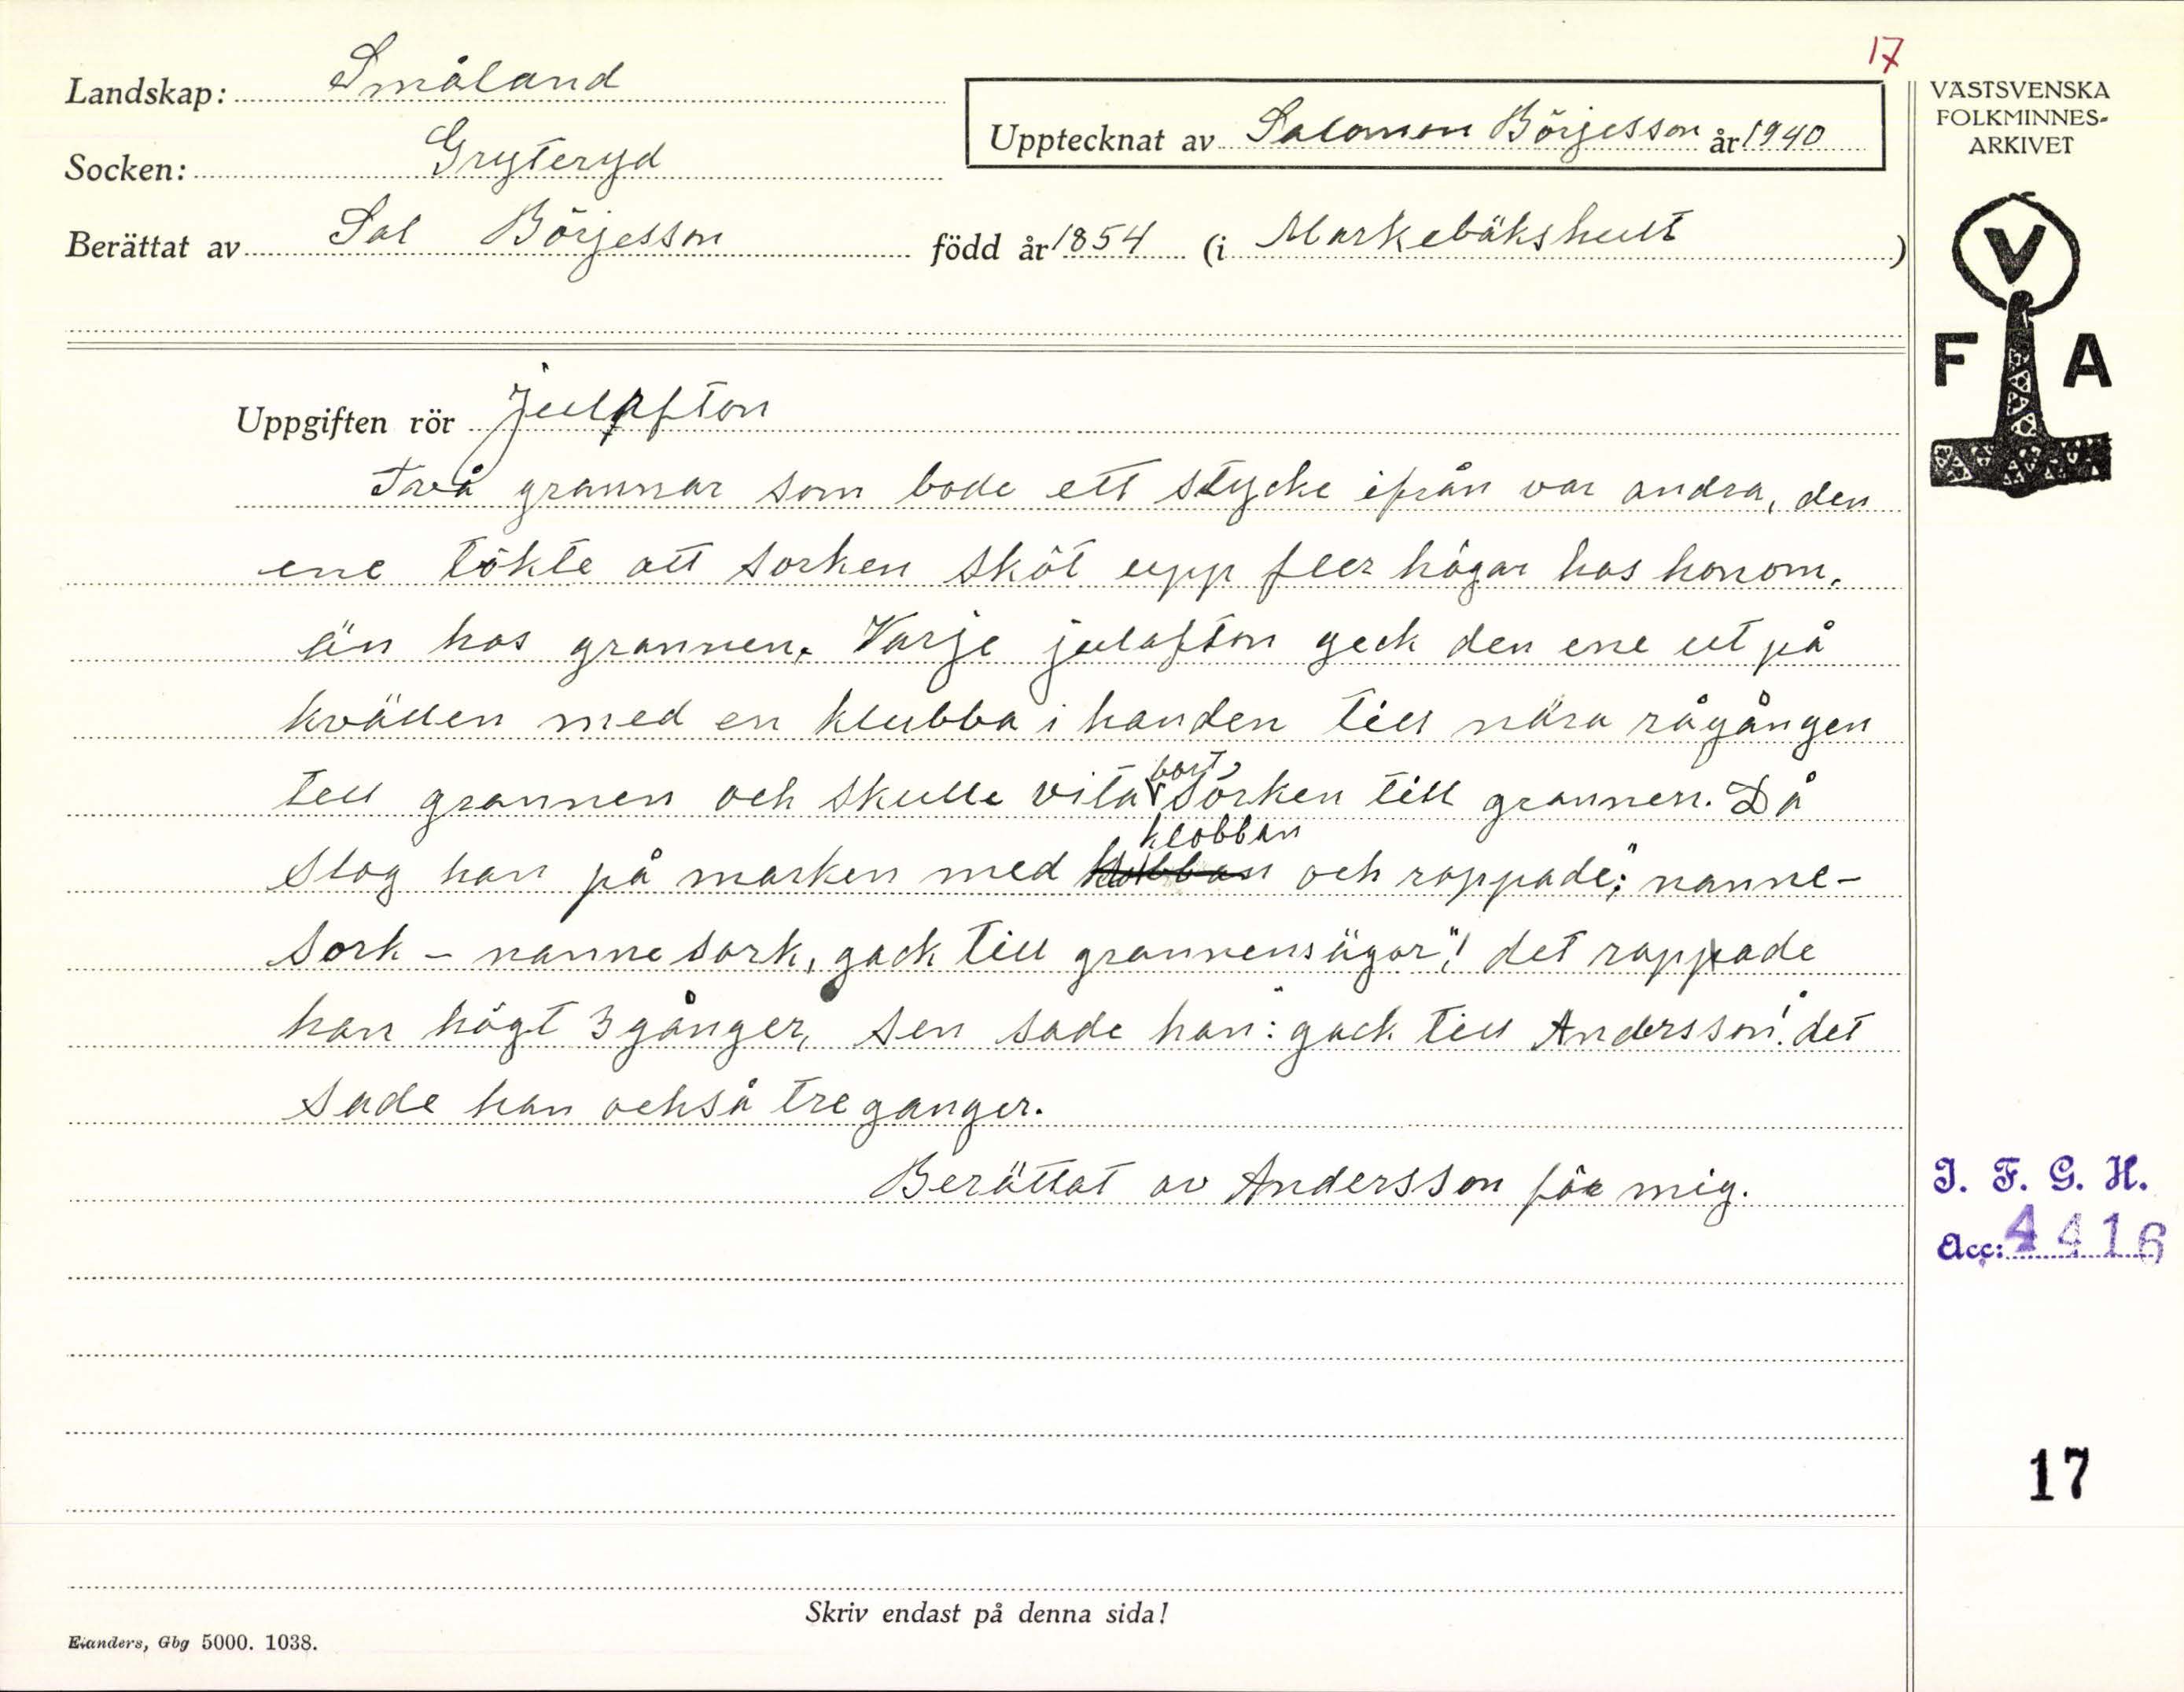 17
Landskap: Småland
Upptecknat av Salomon Börjesson år 1940
Socken: Gryteryd
Berättat av Sal Börjesson född år 1854 (i Markebäkshult)
VÄSTSVENSKA
FOLKMINNES-
ARKIVET
V
F A
Uppgiften rör Julafton
Två grannar som bode ett stycke ifrån var andra, den
ene tökte att sorken sköt upp fler högar hos honom.
än hos grannen. Varje julafton geck den ene ut på
kvällen med en klubba i handen till nära rågången
till grannen och skulle visa bort sorken till grannen. Då
slog han på marken med klobban och roppade: "nanne-
sork - nannesork, gack till grannens ägor"! det roppade
han högt 3 gånger, sen sade han: gack till Andersson! det
sade han ochså tre ganger.
Berättat av Andersson för mig.
I. F. G. H.
Acc: 4416
17
Skriv endast på denna sida!
Elanders, Gbg 5000. 1038.